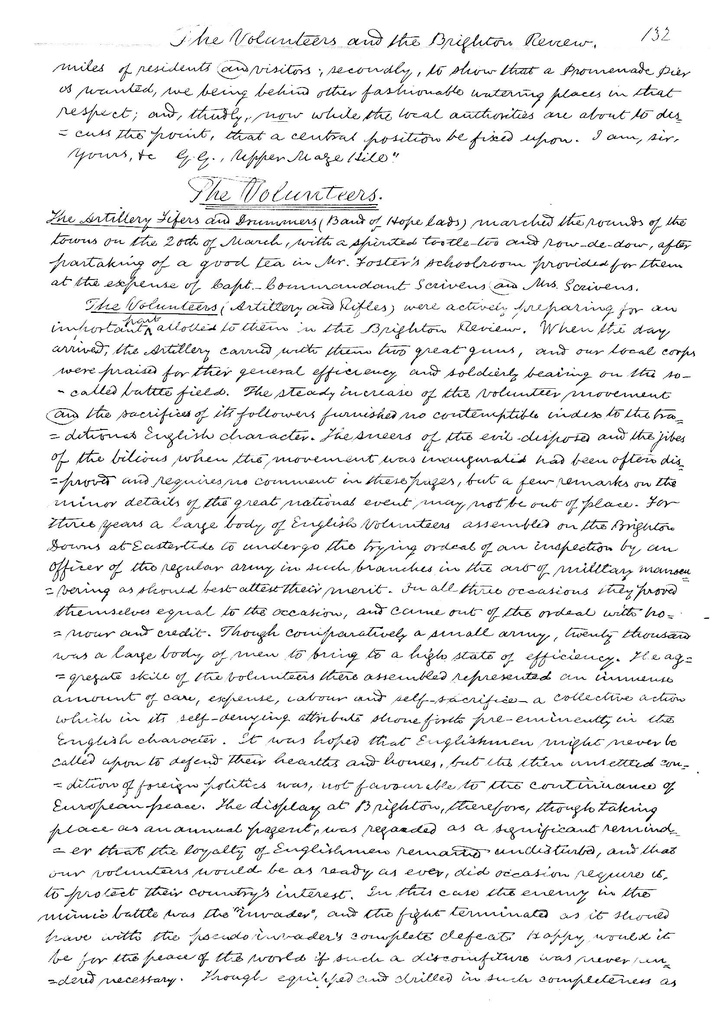 The Volunteers and the Brighton Review. 132
miles of residents and visitors; secondly, to show that a Promenade Pier
is wanted, we being behind other fashionable watering places in that
respect; and, thirdly, now while the local authorities are about to dis
=cuss the point, that a central position be fixed upon. I am, sir,
Yours, &c G.G., Upper Maze Hill"
The Volunteers.
The Artillery Fifers and Drummers (Band of Hope lads) marched the rounds of the
towns on the 20th of March, with a spirited tootle-too and row-de-dow, after
partaking of a good tea in Mr. Foster's schoolroom provided for them
at the expense of Capt.-Commandant Scrivens and Mrs. Scrivens.
The Volunteers (Artillery and Rifles) were actively preparing for an
important part allotted to them in the Brighton Review. When the day
arrived, the Artillery carried with them two great guns, and our local corps
were praised for their general efficiency and soldierly bearing on the so-
-called battle field. The steady increase of the volunteer movement
and the sacrifices of its followers furnished no contemptible index to the tra=
=ditional English character. The sneers of the evil-disposed and the jibes
of the bilious when the movement was inaugurated had been often dis=
=proved and requires no comment in these pages, but a few remarks on the
minor details of the great national event may not be out of place. For
three years a large body of English Volunteers assembled on the Brighton
Downs at Eastertide to undergo the trying ordeal of an inspection by an
officer of the regular army in such branches in the art of military manoeu
=vering as should best attest their merit. In all three occasions they proved
themselves equal to the occasion, and came out of the ordeal with ho=
=nour and credit. Though comparatively a small army, twenty thousand
was a large body of men to bring to a high state of efficiency. The ag=
=gregate skill of the volunteers there assembled represented an immense
amount of care, expense, labour and self-sacrifice - a collective action
which in its self-denying attribute shone forth pre-eminently in the
English character. It was hoped that Englishmen might never be
called upon to defend their hearths and homes, but the then unsettled con=
=dition of foreign politics was, not favourable to the continuance of
European peace. The display at Brighton, therefore, though taking
place as an annual pagent, was regarded as a significant remind=
=er that the loyalty of Englishmen remained undisturbed, and that
our volunteers would be as ready as ever, did occasion require it,
to protect their country's interest. In this case the enemy in the
mimic battle was the "invader", and the fight terminated as it should
have with the pseudo invader's complete defeat. Happy would it
be for the peace of the world if such a discomfiture was never ren=
=dered necessary. Though equipped and drilled in such completeness as